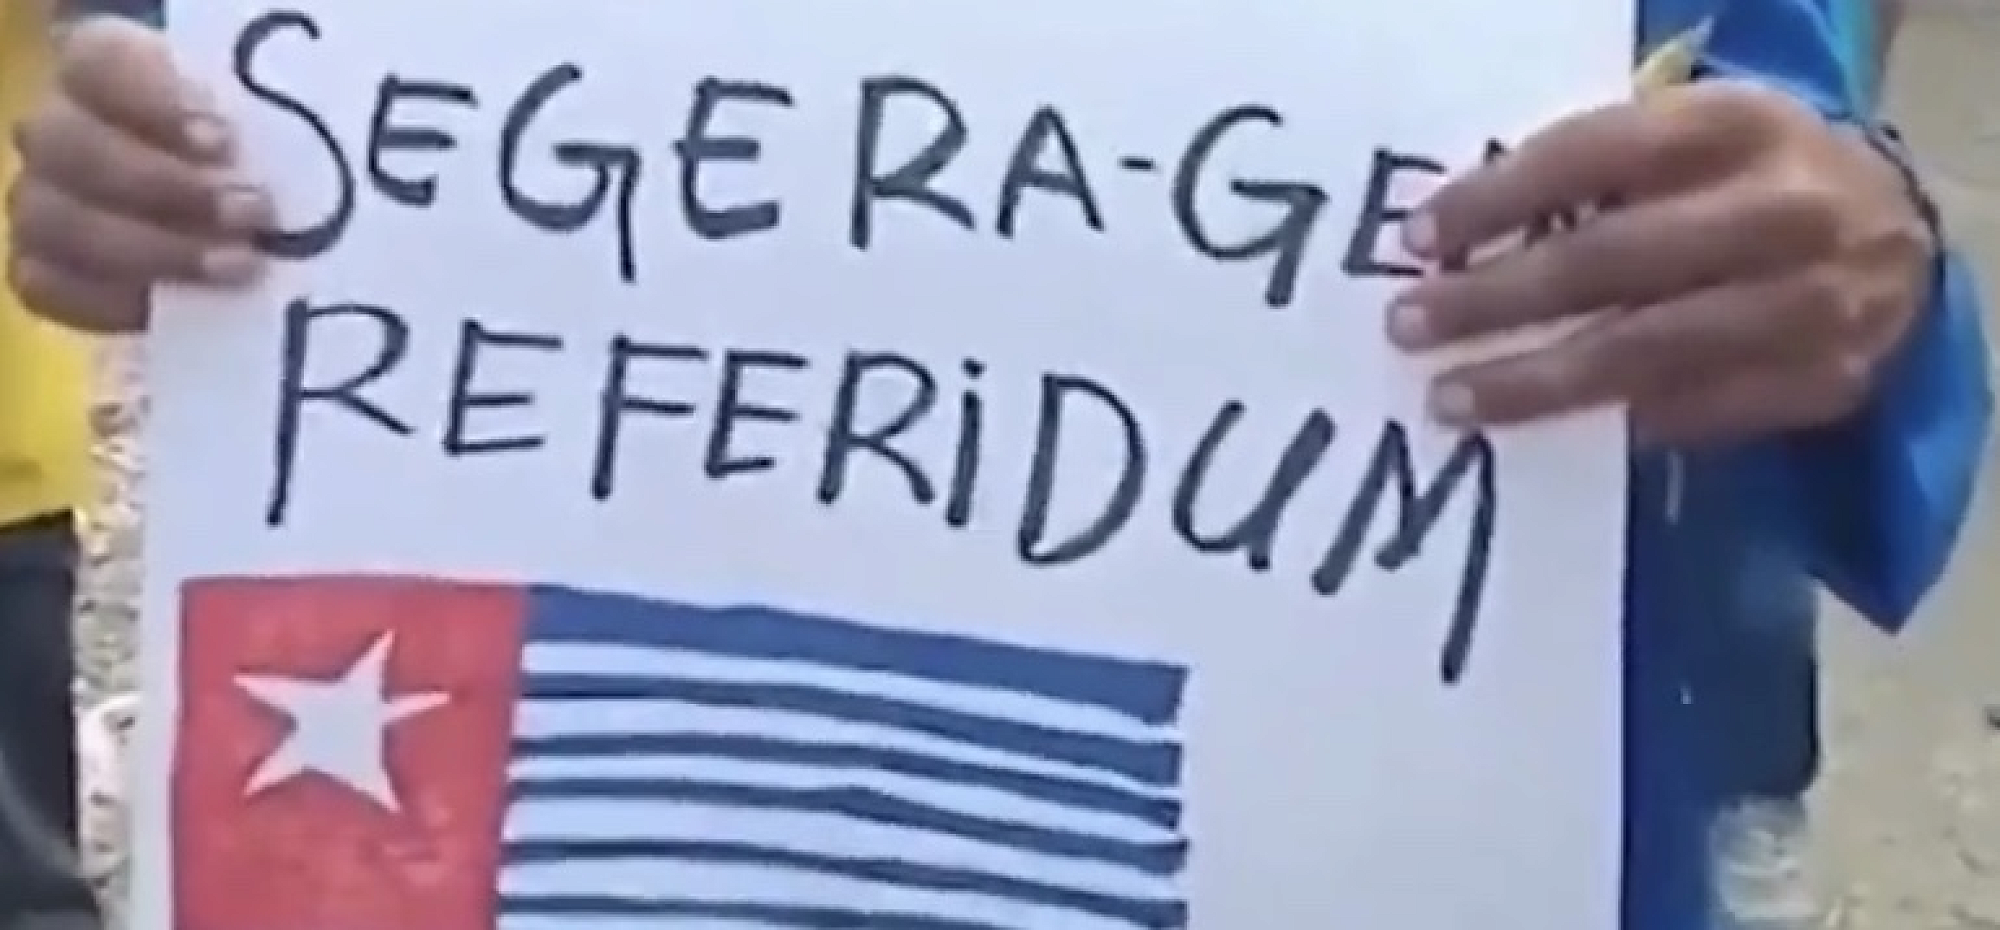 SEGERA-GE
REFERIDUM